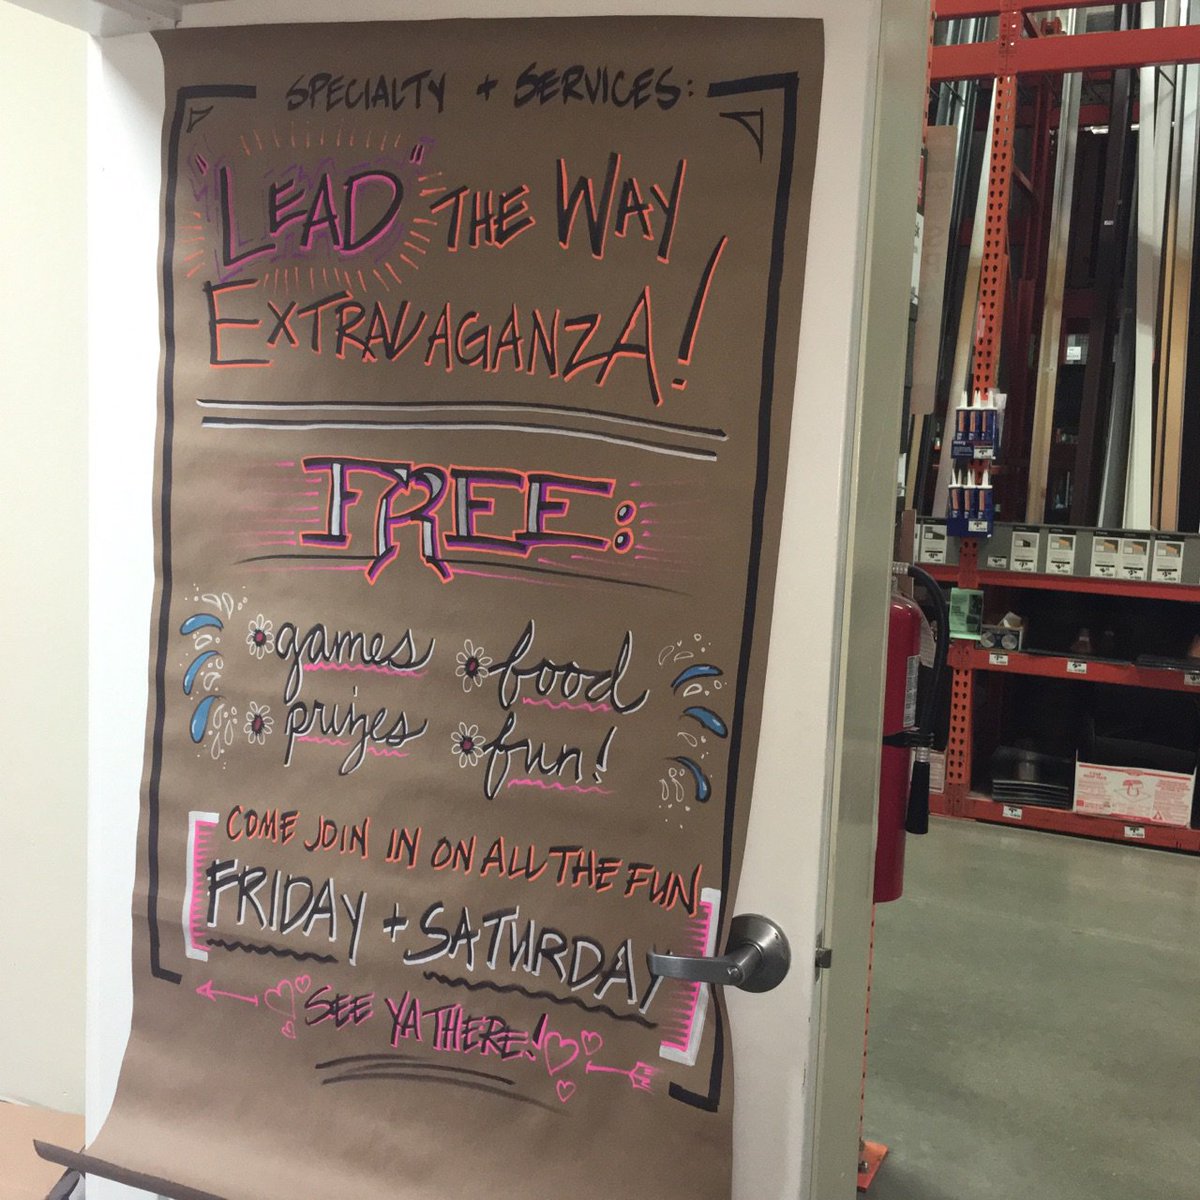 SPECIALTY + SERVICES:
"LEAD" THE WAY
EXTRAVAGANZA!
FREE:
games food
prizes fun!
COME JOIN IN ON ALL THE FUN
FRIDAY + SATURDAY
SEE YA THERE!